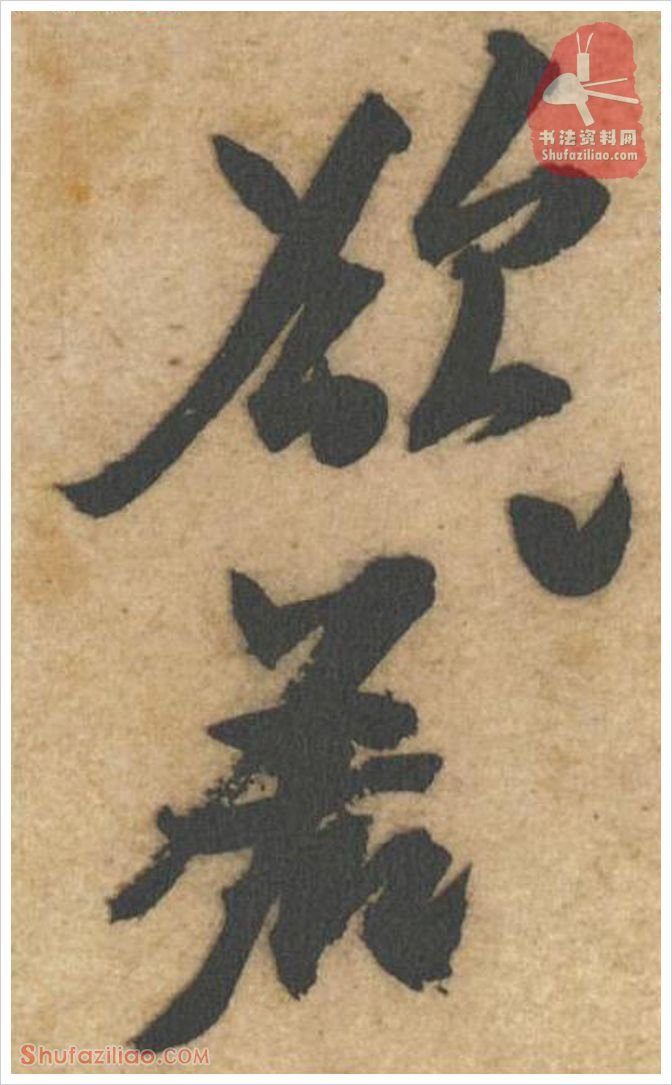 欲
着
书法资料网
Shufaziliao.com
Shufaziliao.com